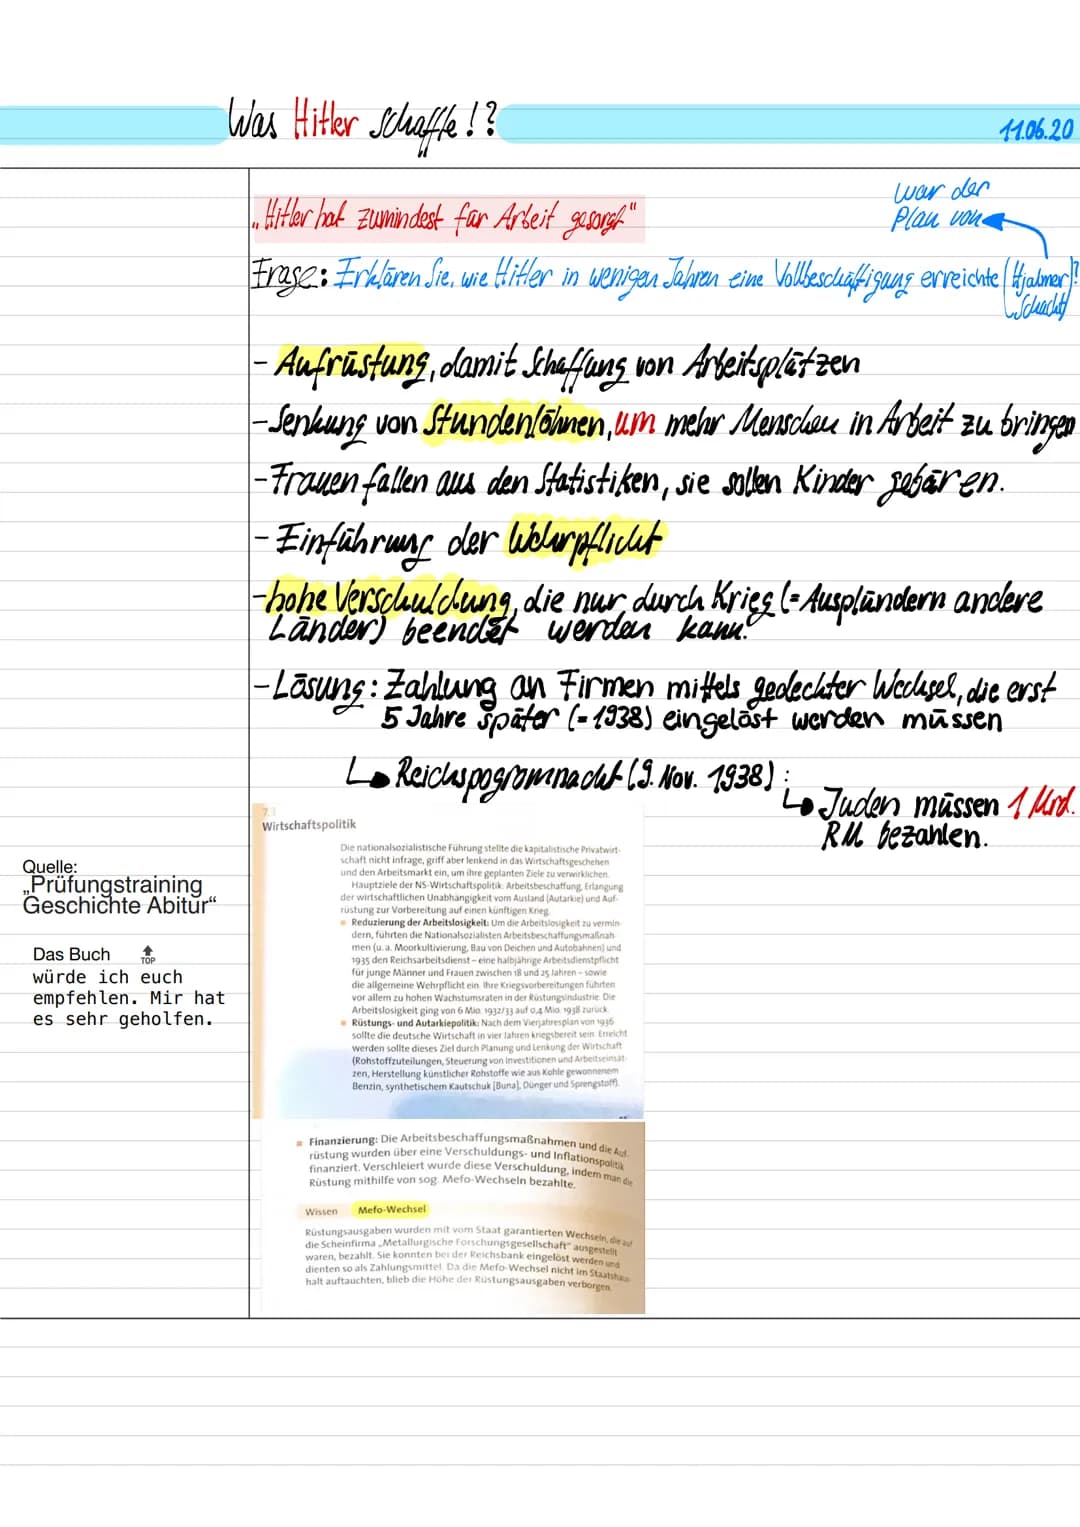 Was Hitler schaffte!?
11.06.20
war der
Plan von
„Hitler hat zumindest für Arbeit gesorgt"
Frage: Erklären Sie, wie Hitler in wenigen Jahren eine Vollbeschäftigung erreichte (Hjalmer)?
Schacht
- Aufrüstung, damit Schaffung von Arbeitsplätzen
- Senkung von Stundenlöhnen, um mehr Menschen in Arbeit zu bringen
- Frauen fallen aus den Statistiken, sie sollen Kinder gebären.
- Einführung der Wehrpflicht
- hohe Verschuldung, die nur durch Krieg (= Ausplündern andere
Länder) beendet werden kann.
- Lösung: Zahlung an Firmen mittels gedeckter Wechsel, die erst
5 Jahre später (= 1938) eingelöst werden müssen
↳ Reichspogromnacht (9. Nov. 1938):
↳ Juden müssen 1 Mrd.
RM bezahlen.
7.3
Wirtschaftspolitik
Die nationalsozialistische Führung stellte die kapitalistische Privatwirt-
schaft nicht infrage, griff aber lenkend in das Wirtschaftsgeschehen
und den Arbeitsmarkt ein, um ihre geplanten Ziele zu verwirklichen.
Hauptziele der NS-Wirtschaftspolitik: Arbeitsbeschaffung, Erlangung
der wirtschaftlichen Unabhängigkeit vom Ausland (Autarkie) und Auf-
rüstung zur Vorbereitung auf einen künftigen Krieg.
Reduzierung der Arbeitslosigkeit: Um die Arbeitslosigkeit zu vermin-
dern, führten die Nationalsozialisten Arbeitsbeschaffungsmaßnah
men (u. a. Moorkultivierung, Bau von Deichen und Autobahnen) und
1935 den Reichsarbeitsdienst – eine halbjährige Arbeitsdienstpflicht
für junge Männer und Frauen zwischen 18 und 25 Jahren – sowie
die allgemeine Wehrpflicht ein. Ihre Kriegsvorbereitungen führten
vor allem zu hohen Wachstumsraten in der Rüstungsindustrie. Die
Arbeitslosigkeit ging von 6 Mio. 1932/33 auf 0,4 Mio. 1938 zurück.
Rüstungs- und Autarkiepolitik: Nach dem Vierjahresplan von 1936
sollte die deutsche Wirtschaft in vier Jahren kriegsbereit sein. Erreicht
werden sollte dieses Ziel durch Planung und Lenkung der Wirtschaft
(Rohstoffzuteilungen, Steuerung von Investitionen und Arbeitseinsät-
zen, Herstellung künstlicher Rohstoffe wie aus Kohle gewonnenem
Benzin, synthetischem Kautschuk [Buna], Dünger und Sprengstoff).
Quelle:
„Prüfungstraining
Geschichte Abitur“
Das Buch
TOP
würde ich euch
empfehlen. Mir hat
es sehr geholfen.
Finanzierung: Die Arbeitsbeschaffungsmaßnahmen und die Auf-
rüstung wurden über eine Verschuldungs- und Inflationspolitik
finanziert. Verschleiert wurde diese Verschuldung, indem man die
Rüstung mithilfe von sog. Mefo-Wechseln bezahlte.
Wissen Mefo-Wechsel
Rüstungsausgaben wurden mit vom Staat garantierten Wechseln, die auf
die Scheinfirma „Metallurgische Forschungsgesellschaft" ausgestellt
waren, bezahlt. Sie konnten bei der Reichsbank eingelöst werden und
dienten so als Zahlungsmittel. Da die Mefo-Wechsel nicht im Staatshaus-
halt auftauchten, blieb die Höhe der Rüstungsausgaben verborgen.